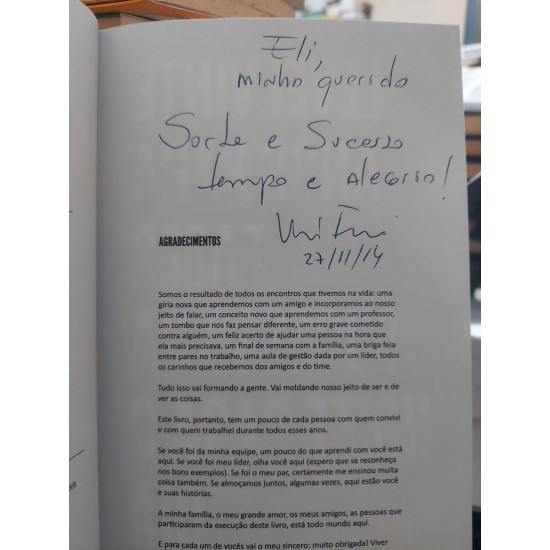 Eli,
minha querida
Sorte e Sucesso
tempo e Alegria!
27/11/14
AGRADECIMENTOS
Somos o resultado de todos os encontros que tivemos na vida: uma
gíria nova que aprendemos com um amigo e incorporamos ao nosso
jeito de falar, um conceito novo que aprendemos com um professor,
um tombo que nos faz pensar diferente, um erro grave cometido
contra alguém, um feliz acerto de ajudar uma pessoa na hora que
ela mais precisava, um final de semana com a família, uma briga feia
entre pares no trabalho, uma aula de gestão dada por um líder, todos
os carinhos que recebemos dos amigos e do time.
Tudo isso vai formando a gente. Vai moldando nosso jeito de ser e de
ver as coisas.
Este livro, portanto, tem um pouco de cada pessoa com quem convivi
e com quem trabalhei durante todos esses anos.
Se você foi da minha equipe, um pouco do que aprendi com você está
aqui. Se você foi meu líder, olha você aqui (espero que se reconheça
nos bons exemplos). Se foi o meu par, certamente me ensinou muita
coisa também. Se almoçamos juntos, algumas vezes, aqui estão você
e suas histórias.
A minha família, o meu grande amor, os meus amigos, as pessoas que
participaram da execução deste livro, está todo mundo aqui.
E para cada um de vocês vai o meu sincero: muito obrigada! Viver